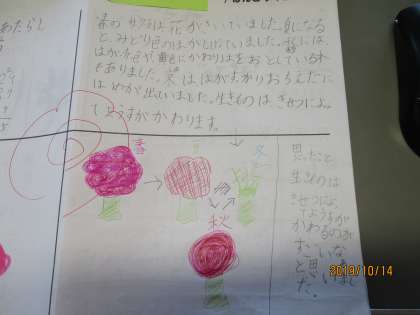 春の サクラは 花がさいていました。夏になる
と、みどり色のはがしげていました。秋には、
はが赤色や黄色にかわりはをおとしている木
もありました。冬ははがすかりおちえだに
はめが出ていました。生きものは きせつによっ
てようすが かわります。
春
秋
冬
思ったこと
生きものは
きせつによっ
てようすが
かわるのが
すごいな
と思いまし
た。
2019/10/14